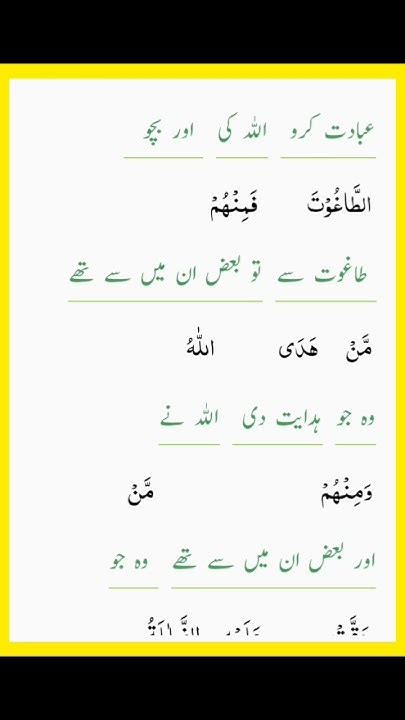 عبادت کرو اللہ کی اور بچو
الطَّاغُوْتَ فَمِنْهُمْ
طاغوت سے تو بعض ان میں سے تھے
مَّنْ هَدَى اللّٰهُ
وہ جو ہدایت دی اللہ نے
وَمِنْهُمْ مَّنْ
اور بعض ان میں سے تھے وہ جو